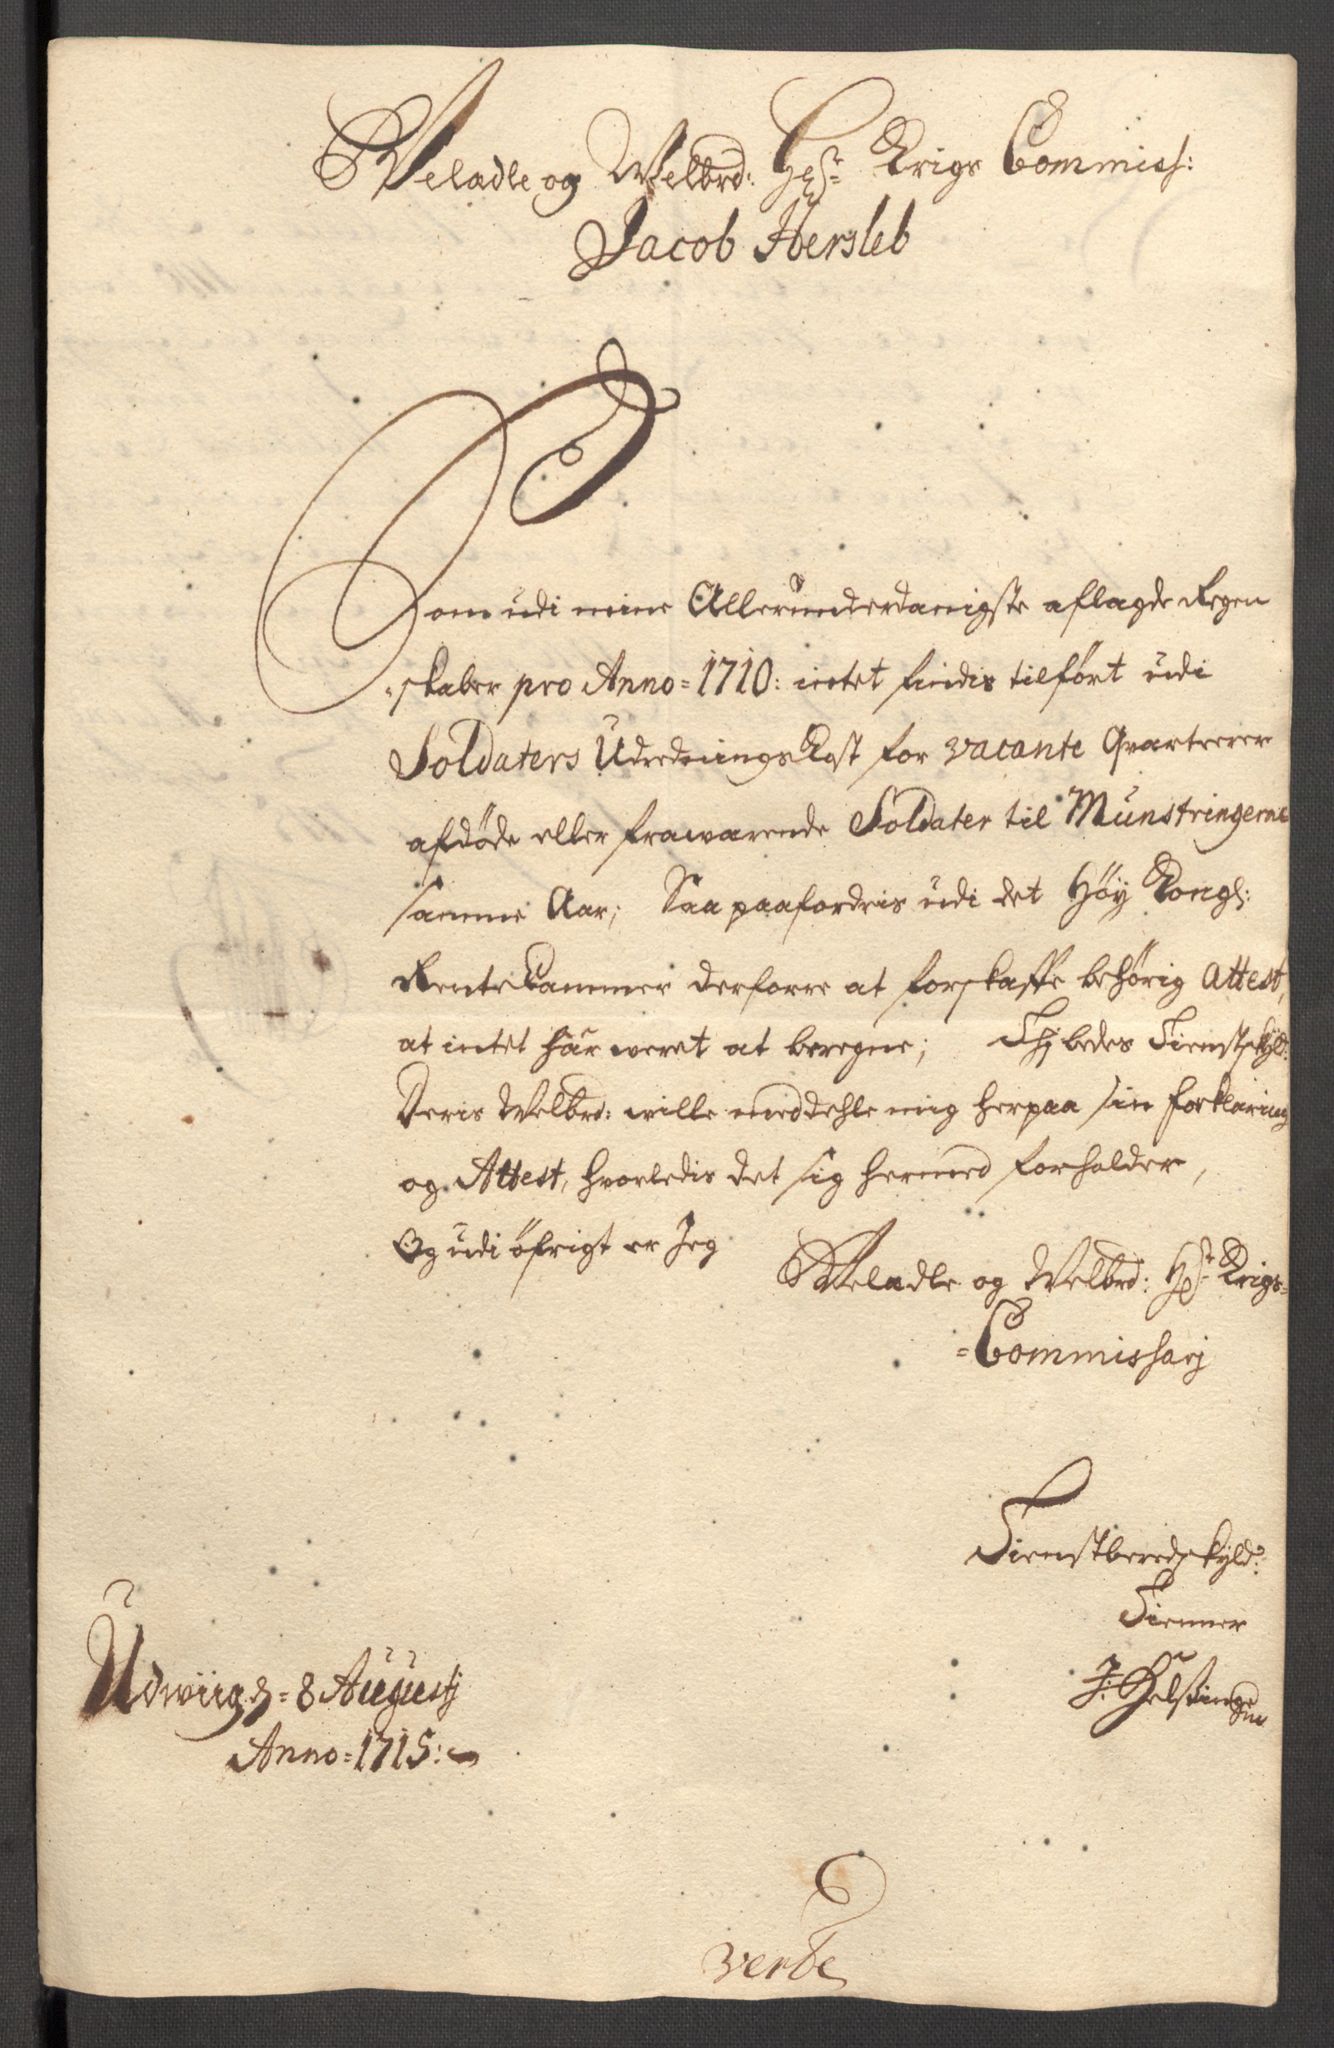 Weladle og Welbrd: Hr: Krigs Commiss:
Jacob Hersleb
Som udi mine Allerunderdanigste aflagde Regen
„skaber pro Anno=1710: intet findis tilført udi
Soldaters UdredningsKost for vacante Qvarterer
afdøde eller frawarende Soldater til Munstringerne
samme Aar; Saa paafordris udi det Høy Kongl:
RenteCammer derforre at forskaffe behørig Attest,
at intet här weret at beregne; Thj bedes Tienstskyld:
Deris Welbrd: wille meddehle mig herpaa sin forklaring
og Attest, hvorledis det sig hermed forholder,
Og udi öfrigt er Jeg
Weladle og Welbrd: Hr: Krigs=
=Commissarj
Tienstberedskyld:
Tienner
J: Helsting
Udwiig d=8 Augustj
Anno=1715:
verte